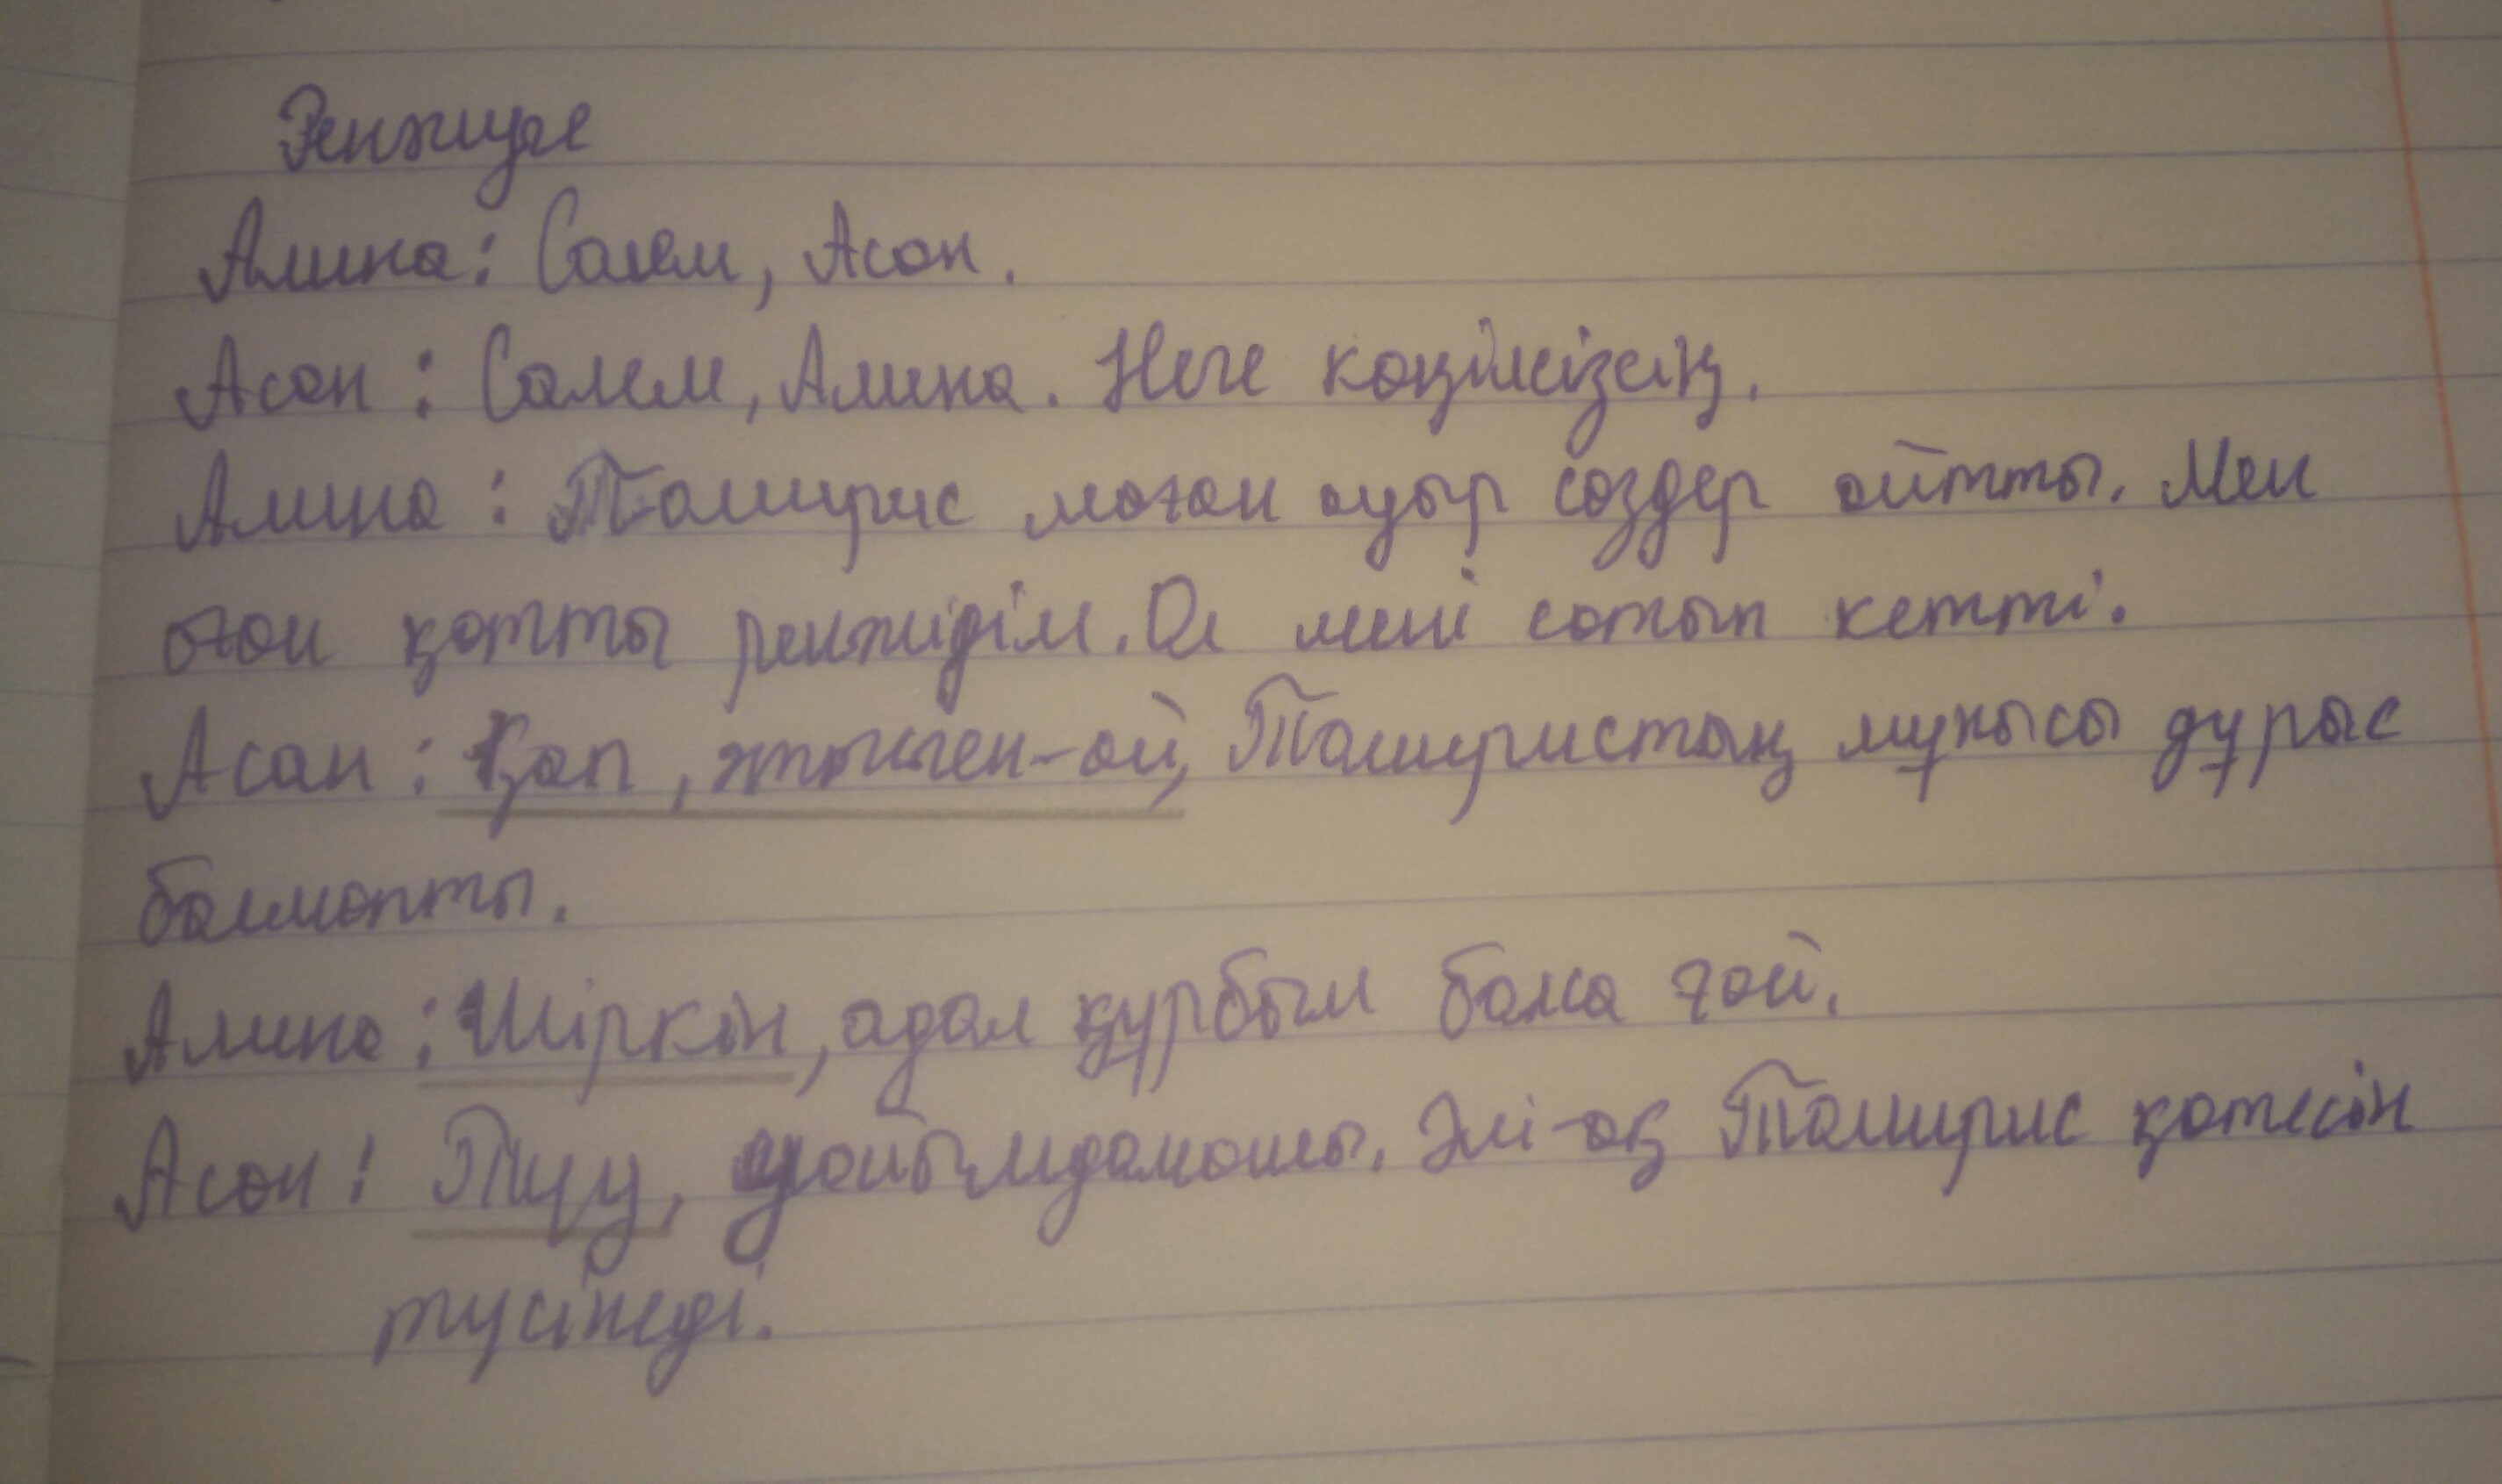 Ренжуге
Амина: Салем, Асан.
Асан: Салем, Амина. Неге көңілсізсің.
Амина: Томирис маған ауыр сөздер айтты. Мен
оған қатты ренжідім. Ол мені сатып кетті.
Асан: Қап, әттеген-ай, Томиристың мұнысы дұрыс
болмапты.
Амина: Шіркін, адал құрбым болса ғой.
Асан: Туу, уайымдамашы. Әлі-ақ Томирис қатесін
түсінеді.